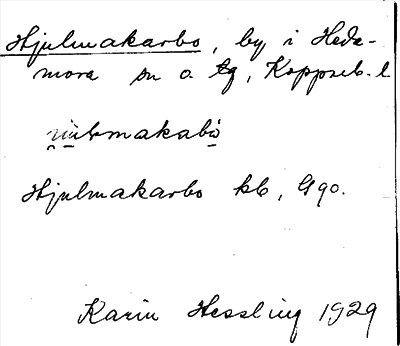 Hjulmakarbo, by i Hede-
mora sn o. tg, Kopparb. l.
Hjulmakarbo kb, Ggo.
Karin Hessling 1929